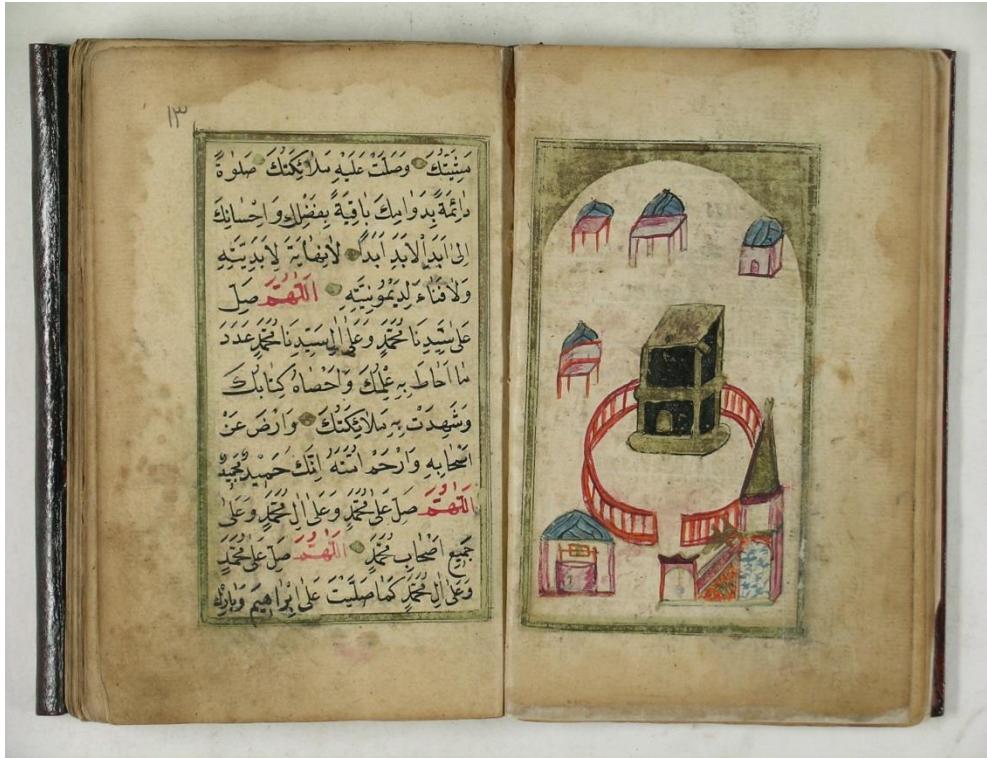 ١٣
مَشِيَّتُكَ وَصَلَّتْ عَلَيْهِ مَلَائِكَتُكَ صَلٰوةً
دَائِمَةً بِدَوَامِكَ بَاقِيَةً بِفَضْلِكَ وَاِحْسَانِكَ
اِلٰى اَبَدِ الْاَبَدِ اَبَدًا لَانِهَايَةَ لِاَبَدِيَّتِهِ
وَلَافَنَاءَ لِدَيْمُومِيَّتِهِ اَللّٰهُمَّ صَلِّ
عَلٰى سَيِّدِنَا مُحَمَّدٍ وَعَلٰى اٰلِ سَيِّدِنَا مُحَمَّدٍ عَدَدَ
مَا اَحَاطَ بِهِ عِلْمُكَ وَاَحْصَاهُ كِتَابُكَ
وَشَهِدَتْ بِهِ مَلَائِكَتُكَ وَارْضَ عَنْ
اَصْحَابِهِ وَارْحَمْ اُمَّتَهُ اِنَّكَ حَمِيدٌ مَجِيدٌ
اَللّٰهُمَّ صَلِّ عَلٰى مُحَمَّدٍ وَعَلٰى اٰلِ مُحَمَّدٍ وَعَلٰى
جَمِيعِ اَصْحَابِ مُحَمَّدٍ اَللّٰهُمَّ صَلِّ عَلٰى مُحَمَّدٍ
وَعَلٰى اٰلِ مُحَمَّدٍ كَمَا صَلَّيْتَ عَلٰى اِبْرَاهِيمَ وَبَارِكْ